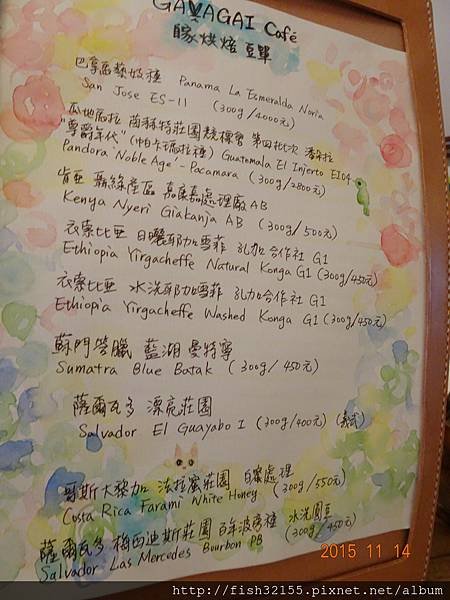 GAVAGAI Café
豚烘焙豆單
巴拿馬藝妓種 Panama La Esmeralda Noria
San Jose ES-11 (300g/4000元)
瓜地馬拉 茵赫特莊園競標會 第四批次 潘朵拉
"尊爵年代"(帕卡瑪拉種) Guatemala El Injerto E104
Pandora Noble Age'- Pacamara (300g/2800元)
肯亞 涅綠產區 嘉康嘉處理廠AB
Kenya Nyeri Giakanja AB (300g/500元)
衣索比亞 日曬耶加雪菲 孔加合作社 G1
Ethiopia Yirgacheffe Natural Konga G1 (300g/450元)
衣索比亞 水洗耶加雪菲 孔加合作社 G1
Ethiopia Yirgacheffe Washed Konga G1 (300g/450元)
蘇門答臘 藍湖曼特寧
Sumatra Blue Batak (300g/450元)
薩爾瓦多 漂亮莊園
Salvador El Guayabo I (300g/400元) (義式)
哥斯大黎加 法拉蜜莊園 白蜜處理
Costa Rica Farami White Honey (300g/550元)
薩爾瓦多 梅西迪斯莊園 百年波旁種 水洗圓豆
Salvador Las Mercedes Bourbon PB (300g/450元)
2015 11 14
http://fish32155.pixnet.net/album